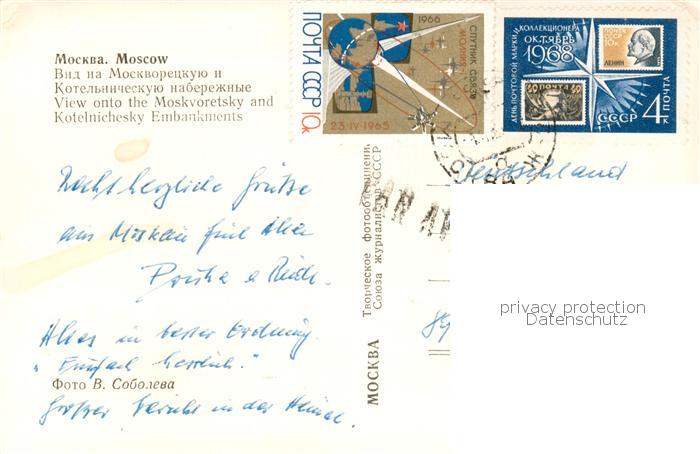 Москва. Moscow
Вид на Москворецкую и
Котельническую набережные
View onto the Moskvoretsky and
Kotelnichesky Embankments
ПОЧТА СССР 10к
1966
СПУТНИК СВЯЗИ
23.IV.1965
ДЕНЬ ПОЧТОВОЙ МАРКИ И КОЛЛЕКЦИОНЕРА
ОКТЯБРЬ
1968
ПОЧТА СССР
10к.
ЛЕНИН
60 ПОЧТА 60
СССР
4к ПОЧТА
Deutschland
Recht herzliche Grüße
aus Moskau
Alles in bester Ordnung.
"Einfach herrlich."
Фото В. Соболева
Großer Bericht in der Heimat.
Творческое фотообъединени
Союза журналистов СССР
МОСКВА
privacy protection
Datenschutz